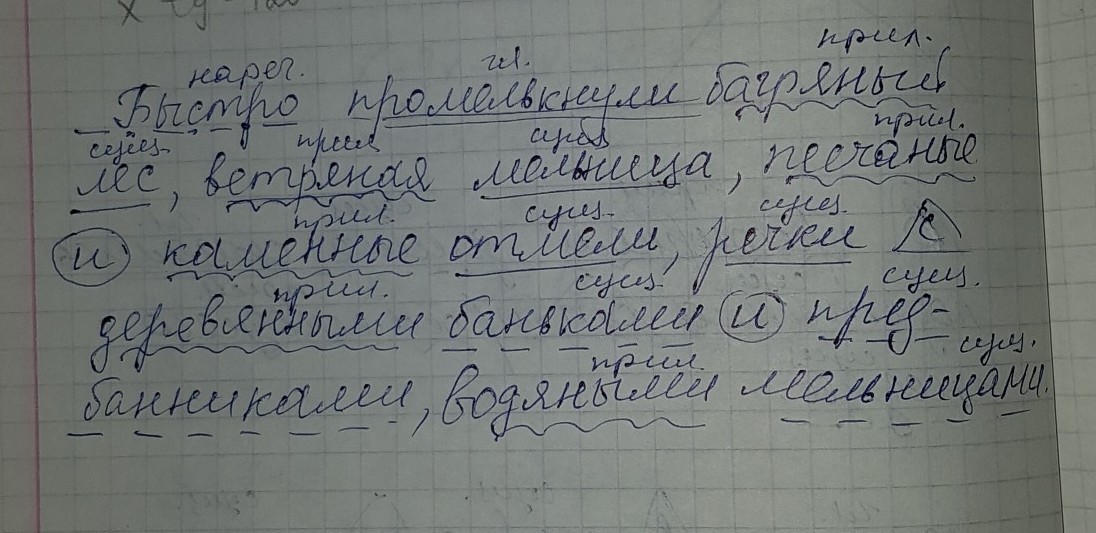 нареч. гл. прил.
Быстро промелькнули багряный
сущ. прил сущ прил.
лес, ветряная мельница, песчаные
прил. сущ. сущ.
и каменные отмели, речки с
прил. сущ. сущ.
деревянными баньками и пред-
прил. сущ.
банниками, водяными мельницами.